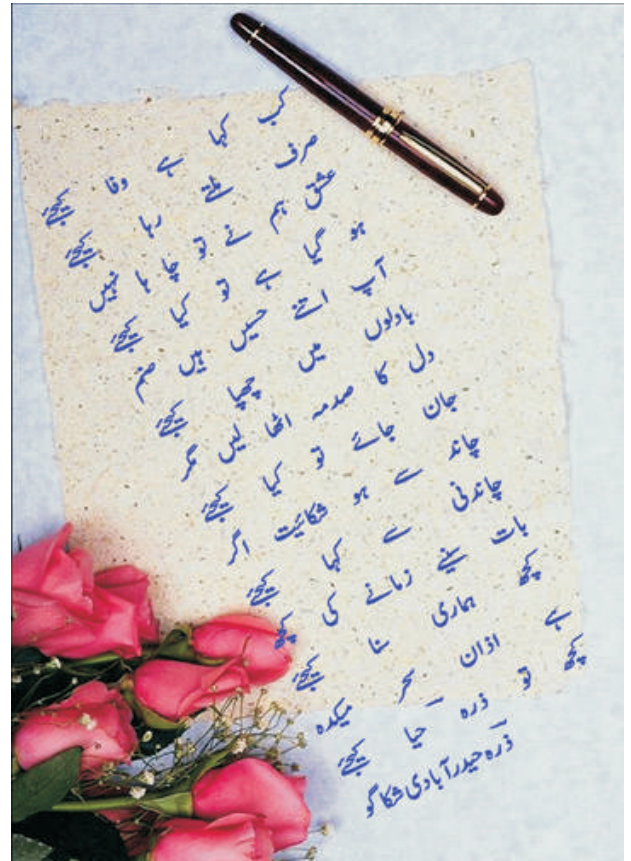 کب کہا ہے وفا کیجئے
صرف ملتے رہا کیجئے
عشق ہم نے تو چاہا نہیں
ہو گیا ہے تو کیا کیجئے
آپ اتنے حسیں ہیں صنم
بادلوں میں چھپا کیجئے
دل کا صدمہ اٹھا لیں مگر
جان جائے تو کیا کیجئے
چاند سے ہو شکائیت اگر
چاندنی سے کہا کیجئے
بات سنیے زمانے کی کچھ
کچھ ہماری سنا کیجئے
ہے اذان سحر میکدہ
کچھ تو ذرہ حیا کیجئے
ذرہ حیدرآبادی شکاگو